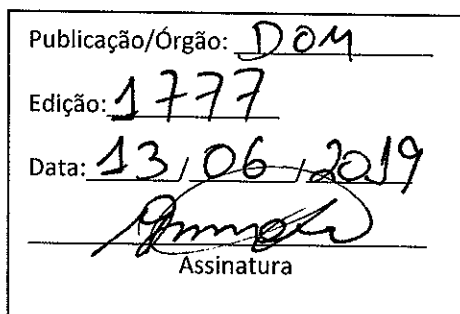 Publicação/Órgão: DOM
Edição: 1777
Data: 13/06/2019
Assinatura